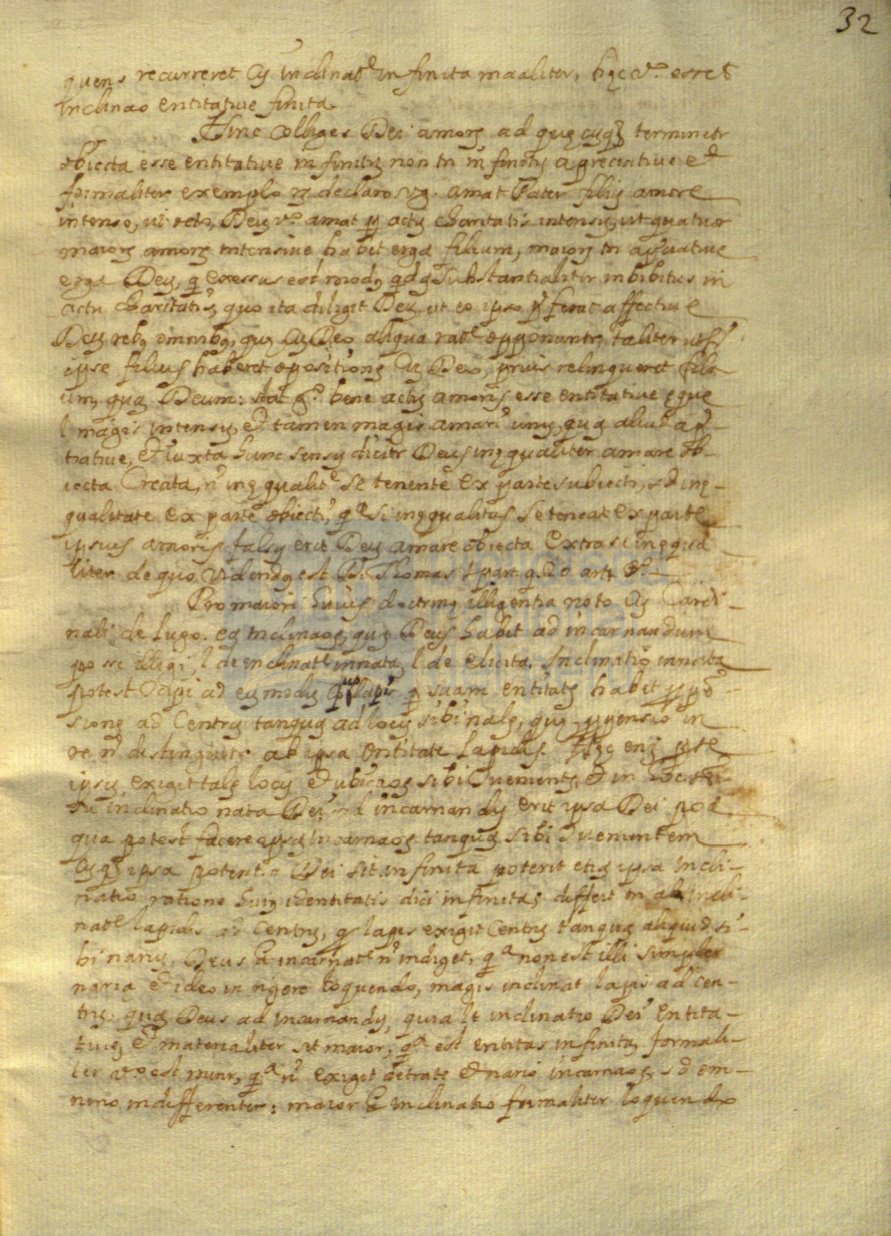 32
quens recurreret cũ inclinatᵉ infinita maãliter, hęc vº esset
inclinaõ entitative finita
Hinc colliges Dei amorẽ ad quęcũqȝ terminetr
obiecta esse entitative infinitũ non tñ infinitũ aprecciative et
formaliter exemplo rẽ declaro. vg. amat Pater filiũ amore
intenso, ut octo, Deũ vº amat ꝑ actũ charitatis intensũ, ut quatuor
maiorẽ amorẽ intensive habet erga filium, maiorẽ tñ apᵗiative
erga Deũ, excessus est modȝ substantialiter inbibitus in
actu charitatis, quo ita diligit Deũ, ut eo ipso affective
Deũ rebȝ omnibȝ, quę cũ Deo aliqua ratᵉ opponuntr, taliter
ipse filius haberet opositionẽ cũ Deo, prius relinqueret fili
um, quã Deum: stat gº bene actũ amoris esse entitative ęque
l magis intensũ, et tamen magis amari unũ, quã aliud ap
tiative, et iuxta hunc sensũ dicitr Deus inęqualiter amare ob-
iecta creata, ñ inęqualitᵉ se tenente ex parte subiecti, sd inę-
qualitate ex parte obiecti, qª si inęqualitas se teneat ex parte
ipsius amoris, falsũ erit Deũ amare obiecta extra se inęqua
liter de quo videndȝ est D. Thomas 1 par. q. 20 art. 3.
Pro maiori huius doctrinę illigentia noto cũ Cardi-
nali de Lugo. eã inclinaõẽ, quã Deus habet ad incarnandum
posse illigi, l de inclinatᵉ innata, l de elicita. Inclinatio innata
potest accipi ad eũ modũ quo lapis ꝑ suam entitatẽ habet ꝓpẽ-
sionẽ ad centrũ tanquã ad locũ sibi nãlẽ, quę ꝓpensio in
re ñ distinguitr ab ipsa entitate lapidis. Hęc enĩ
ipsũ exigit talẽ locũ et ubicaõẽ sibi cvenientẽ, et in hoc sẽ
su inclinatio nata Dei ad incarnandũ erit ipsa Dei poã
qua potest facere ipsã incarnaõẽ tanquã sibi cvenientem
cũqȝ ipsa potentia Dei sit infinita poterit etiã ipsa incli-
natio ratione huiȝ identitatis dici infinita; differt tñ ab incli-
natᵉ lapidis ad centrũ, qª lapis exigit centrũ tanquã aliquid si-
bi nariũ, Deus incarnatᵉ ñ indiget, qª non est illi simplʳ
naria et ideo in rigore loquendo, magis inclinat lapis ad cen-
trũ quã Deus ad incarnandũ, quia lt inclinatio Dei entita-
tive et materialiter sit maior, qª est entitas infinita, formali-
ter vº est minr, qª ñ exigit detrate et nario incarnaõẽ, sd om-
nino indifferenter: maior inclinatio formaliter loquendo